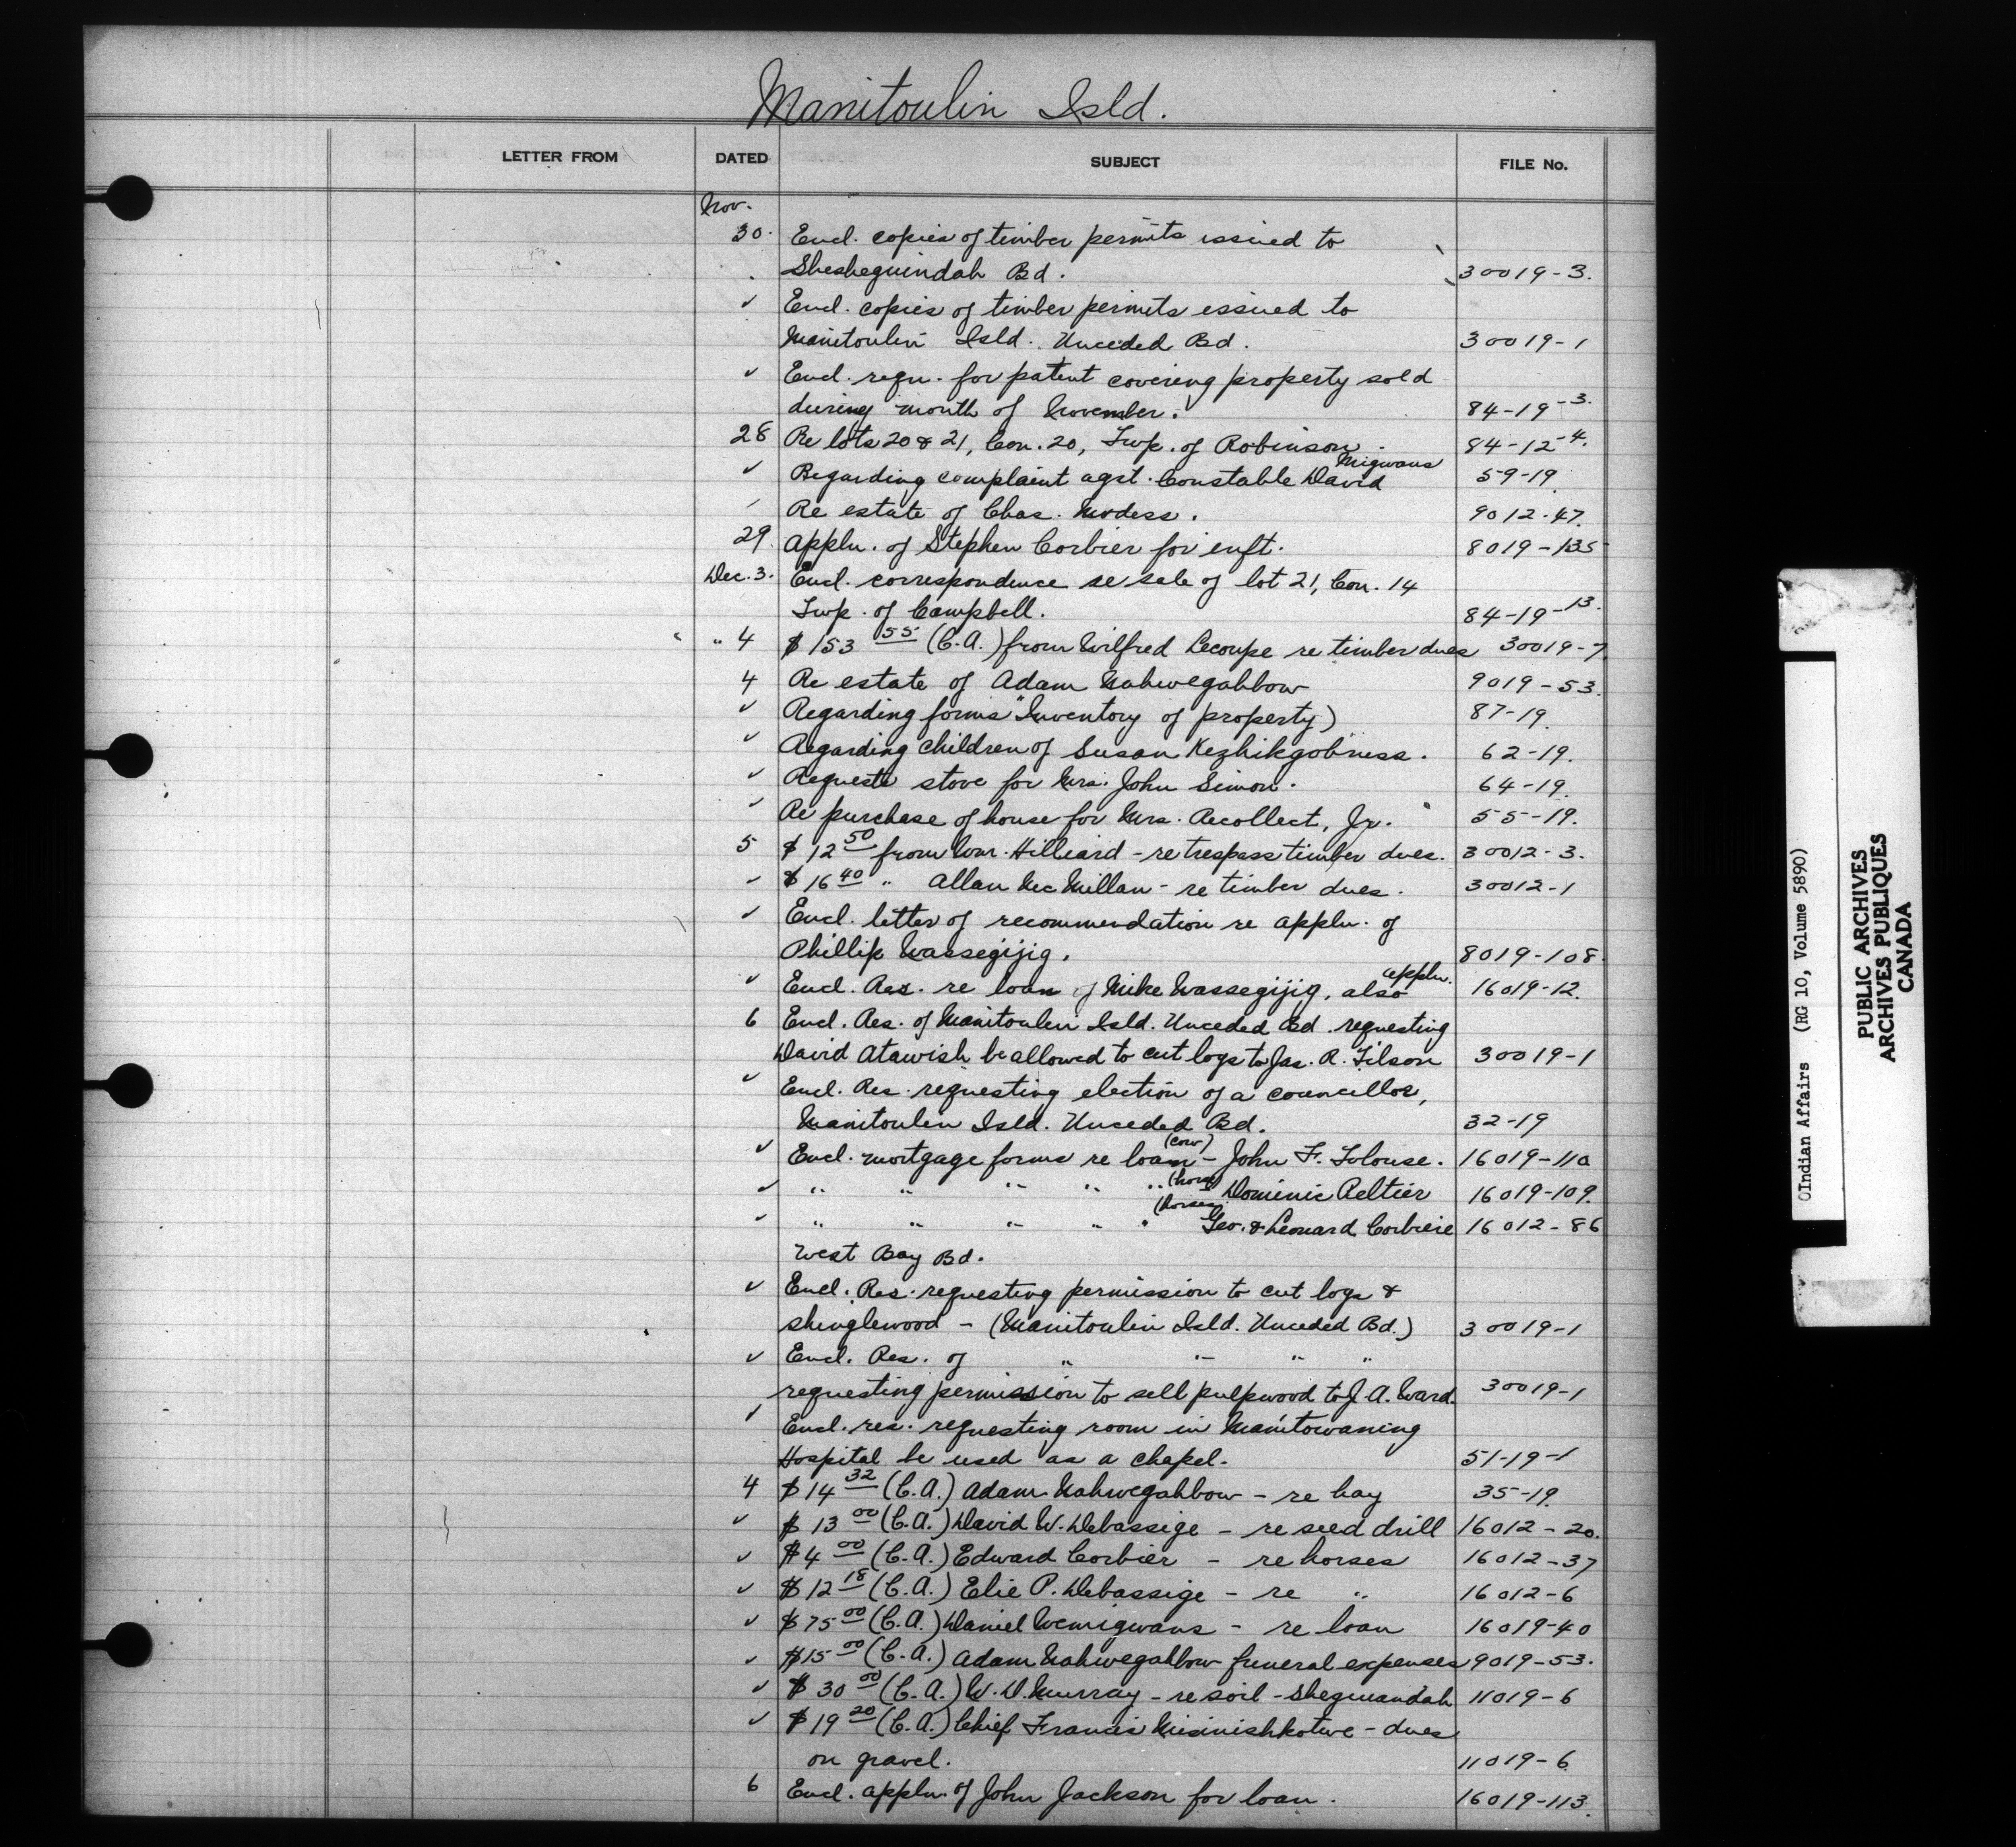 Manitoulin Isld.
LETTER FROM DATED SUBJECT FILE No.
Nov.
30. Encl. copies of timber permits issued to
Sheshequindah Bd. 30019-3.
✓ Encl. copies of timber permits issued to
Manitoulin Isld. Unceded Bd. 30019-1
✓ Encl. requ. for patent covering property sold
during month of November. 84-19-3.
28 Re lots 20 & 21, Con. 20, Twp. of Robinson. 84-12-4.
Migwans
✓ Regarding complaint agst. Constable David 59-19.
Re estate of Chas. 9012-47.
29 Appln. of Stephen Corbier for enft. 8019-135
Dec. 3. Encl. correspondence re sale of lot 21, Con. 14
Twp. of Campbell. 84-19-13.
" 4 $153 55 (C.A.) from Wilfred Lecoupe re timber dues 30019-7.
4 Re estate of Adam Nahwegahbow 9019-53.
✓ Regarding forms "Inventory of property) 87-19.
✓ Regarding children of Susan Kezhikgobness. 62-19.
✓ Requests stove for Mrs. John Simon. 64-19.
✓ Re purchase of house for Mrs. Recollect, Jr. 55-19.
5 $12 50 from Wm. Hilliard - re trespass timber dues. 30012-3.
✓ $16 40 " Allan McMillan - re timber dues. 30012-1
✓ Encl. letter of recommendation re appln. of
Phillip Wassegijig. 8019-108.
✓ Encl. Res. re loan of Mike Wassegijig, also appln. 16019-12.
6 Encl. Res. of Manitoulin Isld. Unceded Bd. requesting
David Atawish be allowed to cut logs to Jas. R. Tilson 30019-1
✓ Encl. Res. requesting election of a councillor,
Manitoulin Isld. Unceded Bd. 32-19
✓ Encl. mortgage forms re loan (cow) - John F. Tolouse. 16019-110
✓ " " " " " (horse) Dominic Peltier 16019-109.
✓ " " " " " (horses) Geo. & Leonard Corbiere 16012-86
West Bay Bd.
✓ Encl. Res. requesting permission to cut logs &
shinglewood - (Manitoulin Isld. Unceded Bd.) 30019-1
✓ Encl. Res. of " " " "
requesting permission to sell pulpwood to J.A. Ward. 30019-1
✓ Encl. res. requesting room in Manitowaning
Hospital be used as a chapel. 51-19-1
4 $14 32 (C.A.) Adam Nahwegahbow - re hay 35-19.
✓ $13 00 (C.A.) David W. Debassige - re seed drill 16012-20.
✓ $4 00 (C.A.) Edward Corbier - re horses 16012-37
✓ $12 18 (C.A.) Elie P. Debassige - re " 16012-6
✓ $75 00 (C.A.) Daniel Wemigwans - re loan 16019-40
✓ $15 00 (C.A.) Adam Nahwegahbow funeral expenses 9019-53.
✓ $30 00 (C.A.) W.D. Murray - re soil - Sheguandah 11019-6
✓ $19 20 (C.A.) Chief Francis Misinishkotwe - dues
on gravel. 11019-6
6 Encl. appln. of John Jackson for loan. 16019-113.
©Indian Affairs (RG 10, Volume 5890)
PUBLIC ARCHIVES
ARCHIVES PUBLIQUES
CANADA